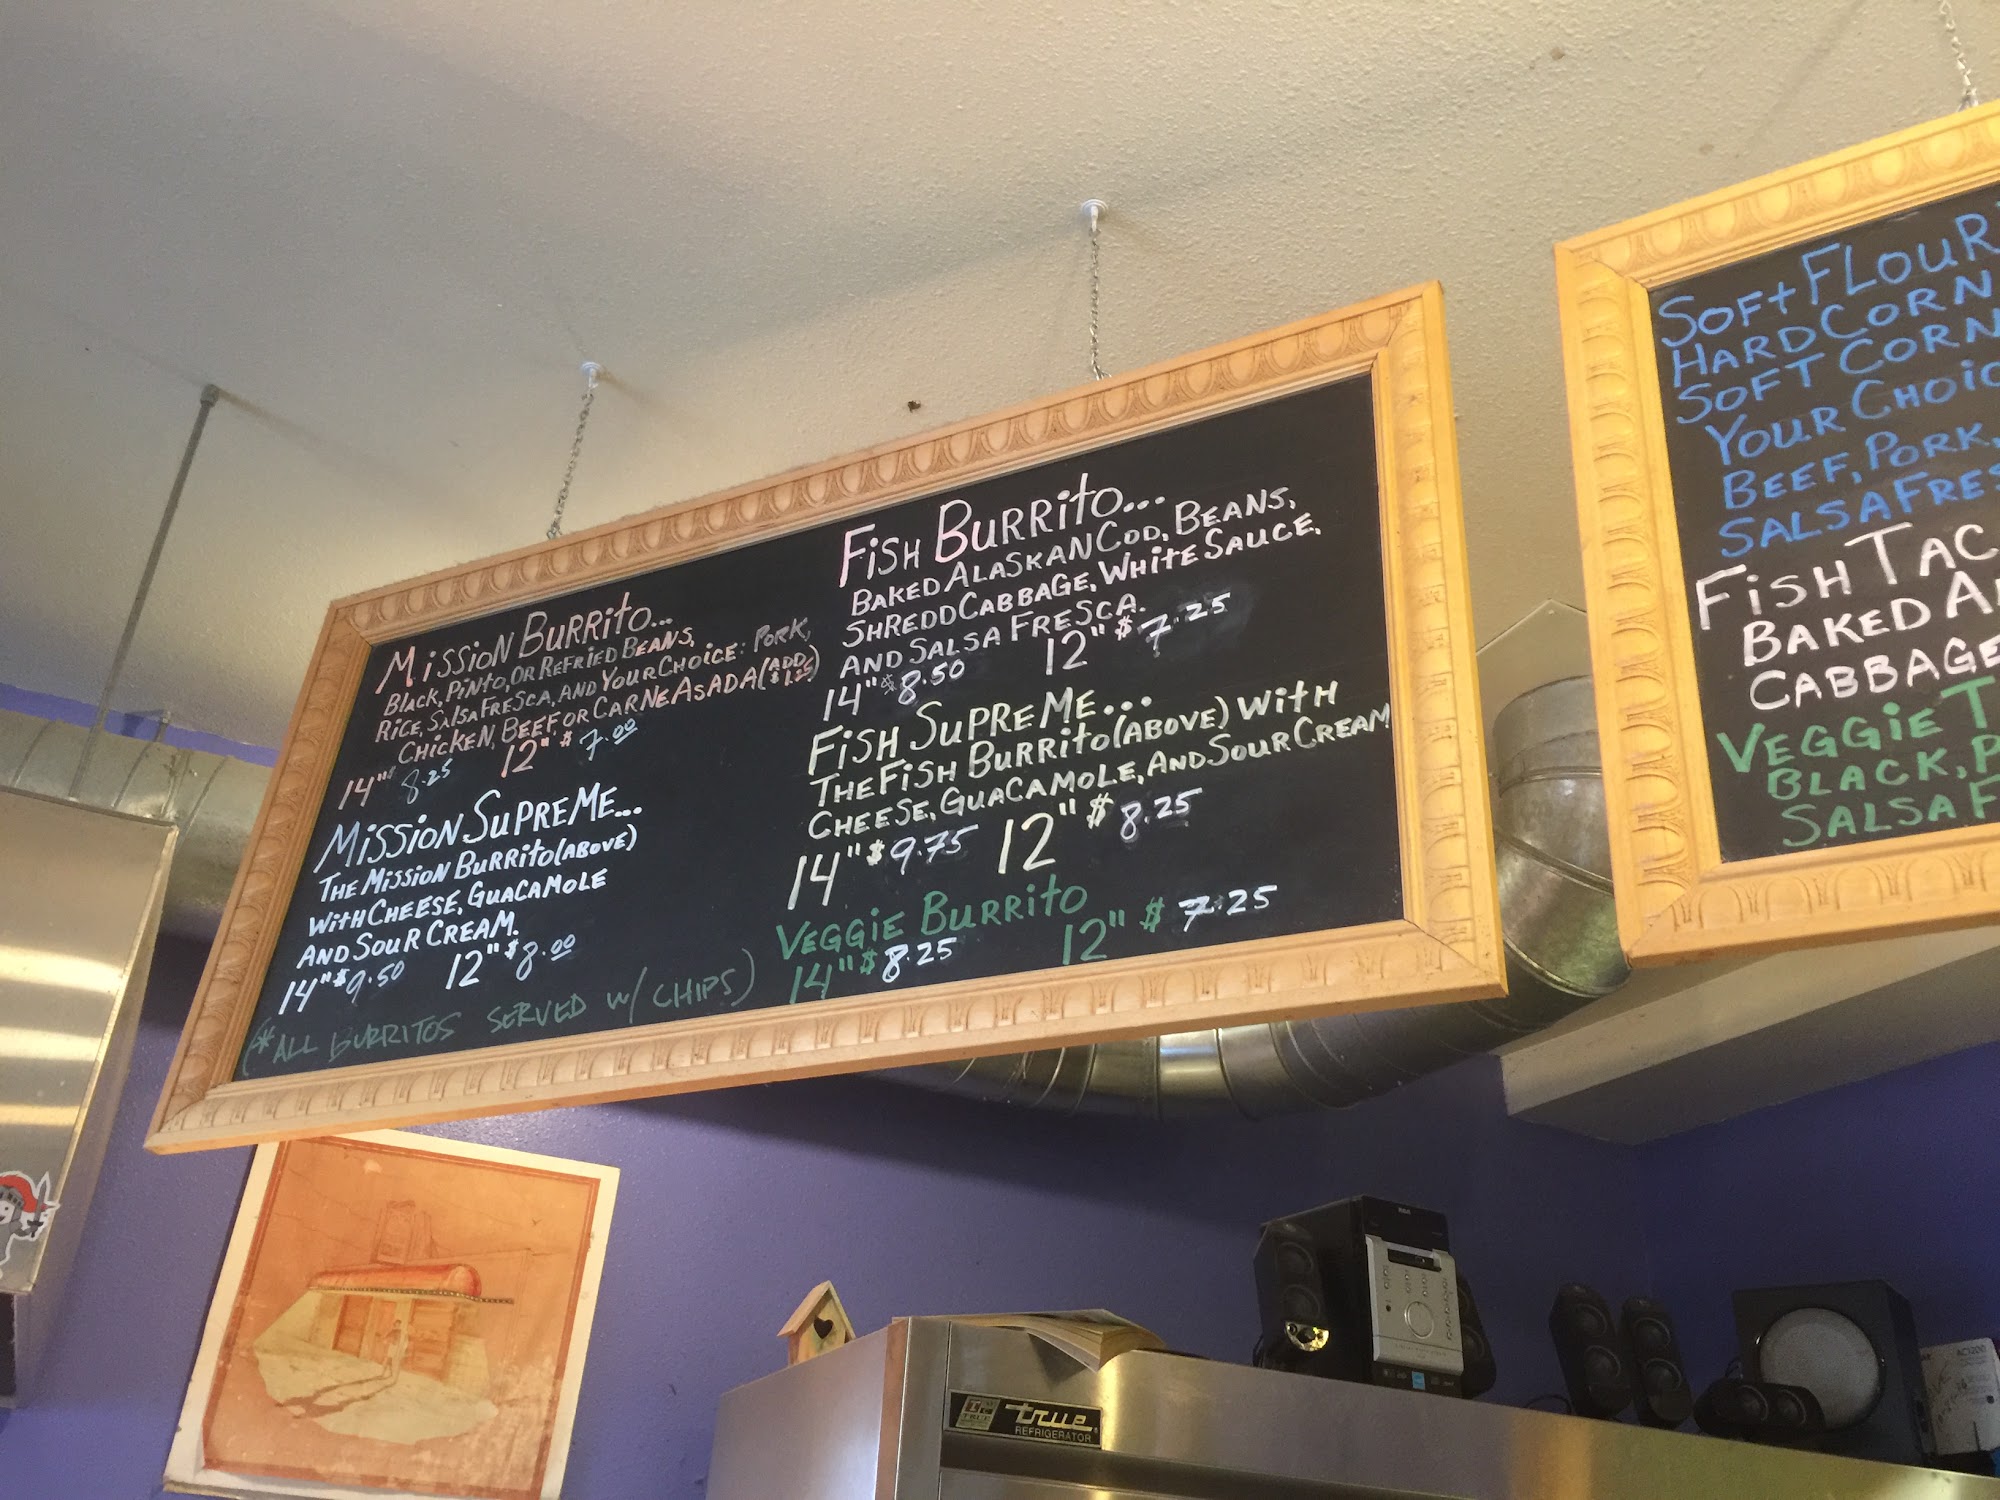 Mission Burrito...
Black, Pinto, or Refried Beans,
Rice, Salsa Fresca, and Your Choice: Pork,
Chicken, Beef, or Carne Asada (Add $1.25)
14" $8.25 12" $7.00
Mission Supreme...
The Mission Burrito (above)
with Cheese, Guacamole
and Sour Cream.
14" $9.50 12" $8.00
(*All Burritos served w/ chips)
Fish Burrito...
Baked Alaskan Cod, Beans,
Shredd Cabbage, White Sauce,
and Salsa Fresca.
14" $8.50 12" $7.25
Fish Supreme...
The Fish Burrito (above) with
Cheese, Guacamole, and Sour Cream
14" $9.75 12" $8.25
Veggie Burrito
14" $8.25 12" $7.25
Soft Flour
Hard Corn
Soft Corn
Your Choic
Beef, Pork,
Salsa Fres
Fish Tac
Baked A
Cabbage
Veggie T
Black, P
Salsa F
true
REFRIGERATOR
RCA